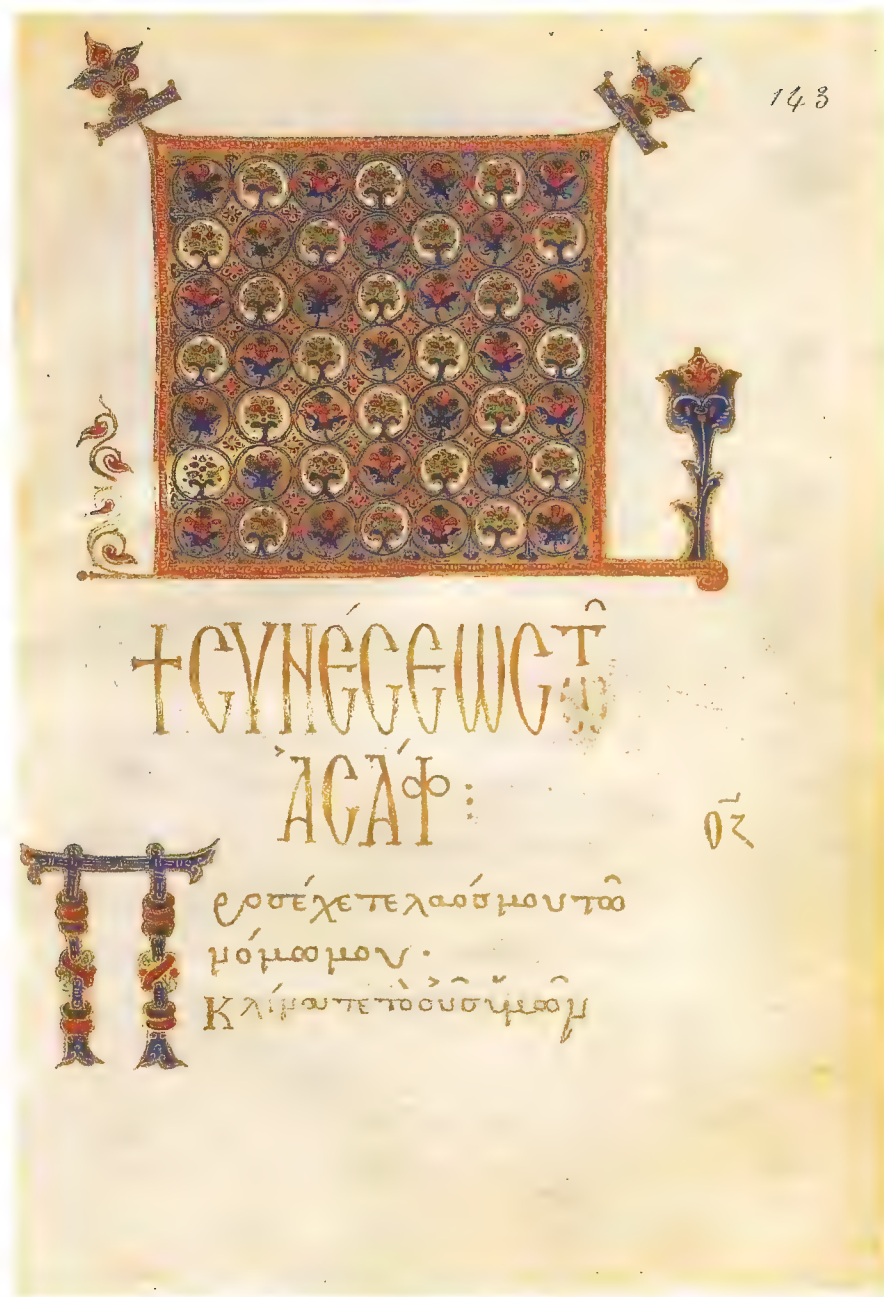 143
+ ϹΥΝΈϹΕΩϹ Τω̑
ἈϹΆΦ :
οζ
Προσέχετε λαός μου τῶ
νόμω μου ·
Κλίνατε τὸ οὖς ὑμῶν